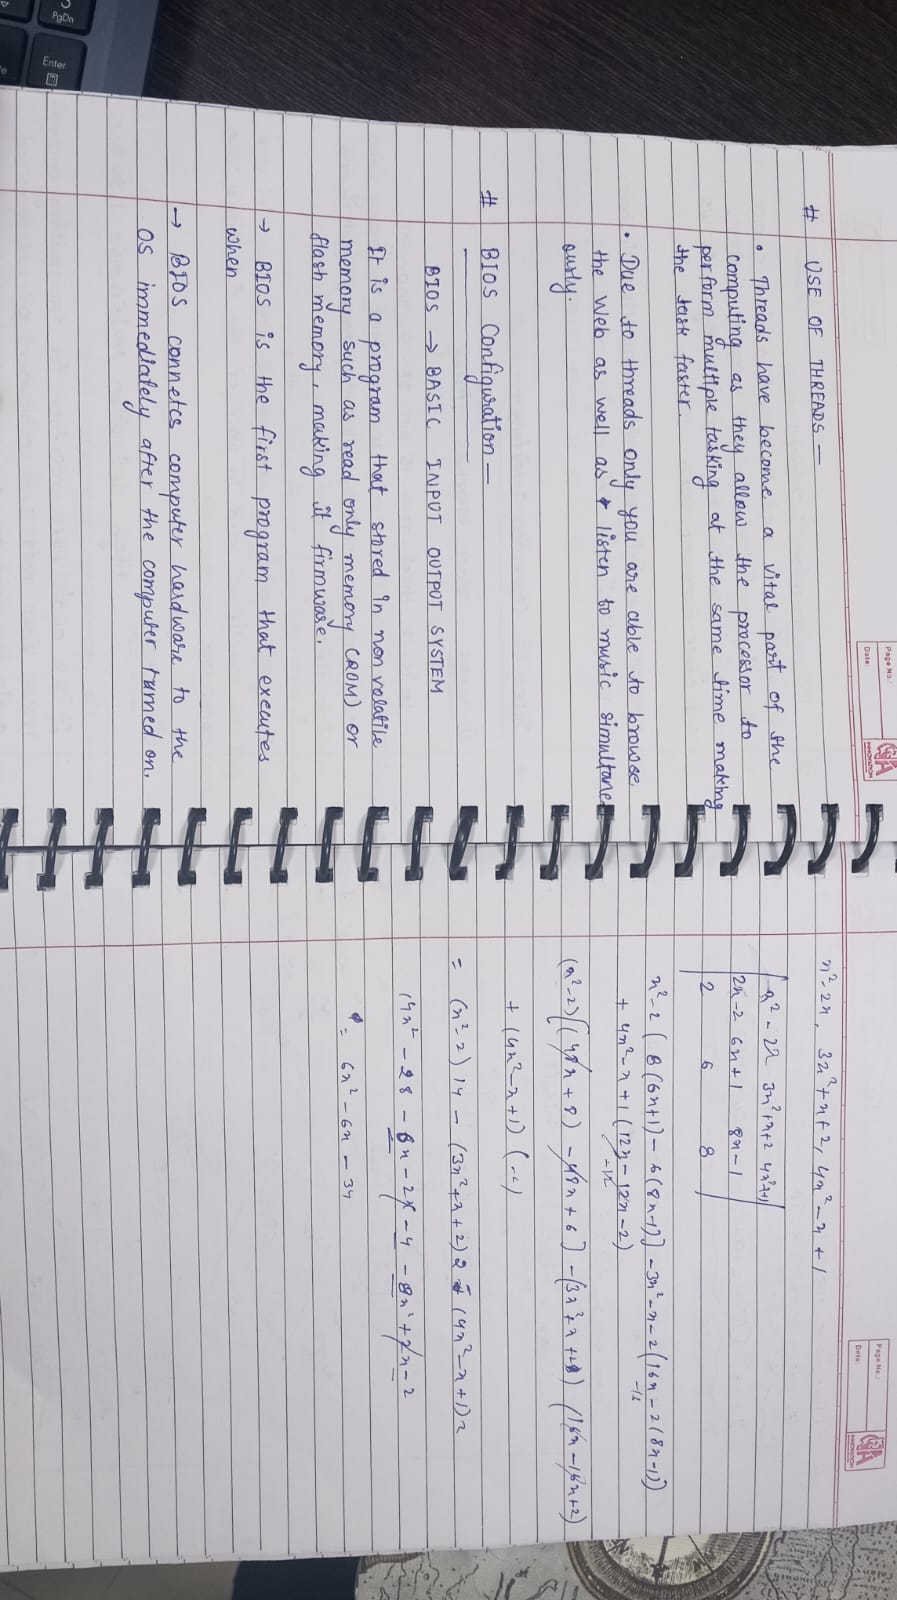 Page No.:
Date:
INNOVATION
# USE OF THREADS —
• Threads have become a vital part of the
computing as they allow the processor to
perform multiple tasking at the same time making
the task faster.
• Due to threads only you are able to browse
the Web as well as listen to music simultane
ously.
# BIOS Configuration —
BIOS → BASIC INPUT OUTPUT SYSTEM
It is a program that stored in non volatile
memory such as read only memory (ROM) or
flash memory, making it firmware.
→ BIOS is the first program that executes
when
→ BIOS connetcs computer hardware to the
OS immediately after the computer turned on.
PgDn
Enter
Page No.:
Date:
INNOVATION
x²-2x, 3x²+x+2, 4x²-x+1
x²-2x 3x²+x+2 4x²-x+1
2x-2 6x+1 8x-1
2 6 8
x²-2 ( 8(6x+1) - 6(8x-1)] -3x²-x-2(16x-2(8x-1))
-16
+ 4x²-x+1 (12x-12x-2)
-12
(x²-2)[(48x+8) -48x+6] -(3x²+x+2) (16x-16x+2)
+ (4x²-x+1)
= (x²-2) 14 - (3x²+x+2)2 - (4x²-x+1)2
14x² - 28 - 6x - 2x - 4 - 8x² + 2x - 2
= 6x² - 6x - 34